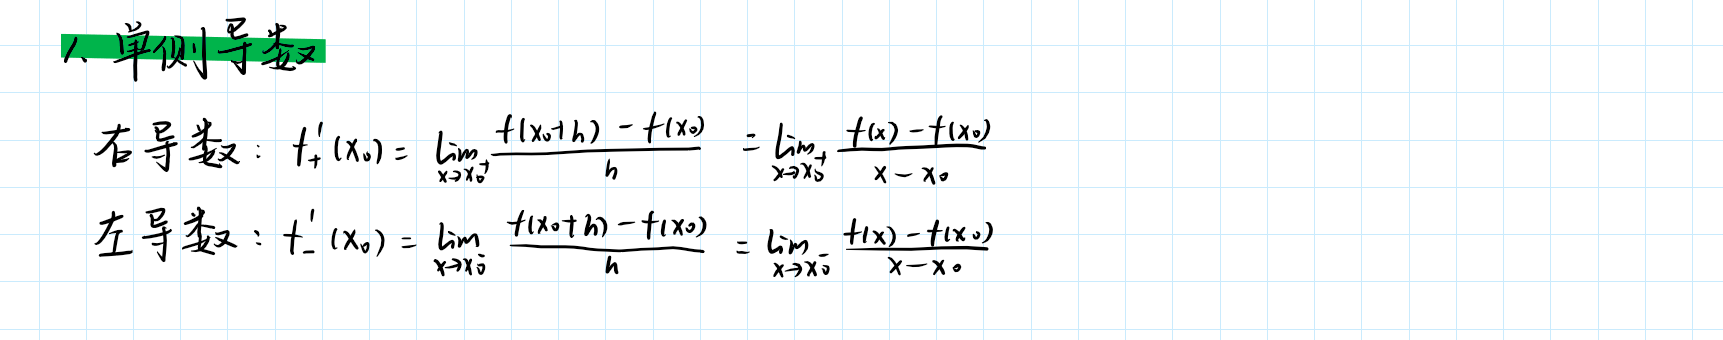 1、单侧导数
右导数: f₊′(x₀) = lim_{x→x₀⁺} (f(x₀+h) - f(x₀))/h = lim_{x→x₀⁺} (f(x) - f(x₀))/(x - x₀)
左导数: f₋′(x₀) = lim_{x→x₀⁻} (f(x₀+h) - f(x₀))/h = lim_{x→x₀⁻} (f(x) - f(x₀))/(x - x₀)